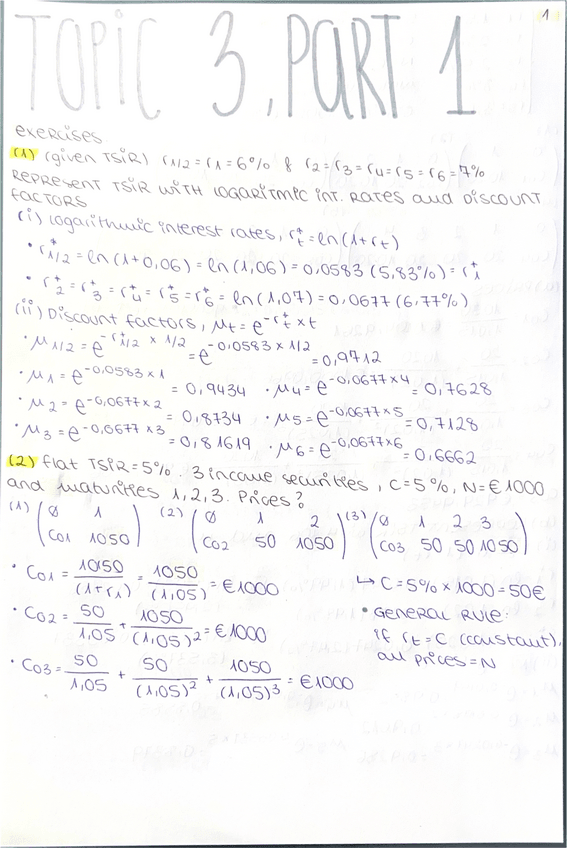 1
TOPIC 3, PART 1
exercises
(1) (given TSIR) r1/2 = r1 = 6% & r2 = r3 = r4 = r5 = r6 = 7%
REPRESENT TSIR WITH LOGARITMIC INT. RATES and DISCOUNT
FACTORS
(i) logarithmic interest rates, r*t = ln(1+rt)
• r*1/2 = ln(1+0,06) = ln(1,06) = 0,0583 (5,83%) = r*1
• r*2 = r*3 = r*4 = r*5 = r*6 = ln(1,07) = 0,0677 (6,77%)
(ii) Discount factors, μt = e^-r*t × t
• μ1/2 = e^-r*1/2 × 1/2 = e^-0,0583 × 1/2 = 0,9712
• μ1 = e^-0,0583 × 1 = 0,9434 • μ4 = e^-0,0677 × 4 = 0,7628
• μ2 = e^-0,0677 × 2 = 0,8734 • μ5 = e^-0,0677 × 5 = 0,7128
• μ3 = e^-0,0677 × 3 = 0,81619 • μ6 = e^-0,0677 × 6 = 0,6662
(2) flat TSIR = 5%. 3 income securities, C = 5%, N = €1000
and maturities 1, 2, 3. Prices?
(1) (Ø 1 (2) (Ø 1 2 (3) (Ø 1 2 3
C01 1050) C02 50 1050) C03 50 50 1050)
• C01 = 10150/(1+r1) = 1050/(1,05) = €1000 ↳ C = 5% × 1000 = 50€
• C02 = 50/1,05 + 1050/(1,05)² = €1000 • GENERAL RULE:
if rt = C (constant),
all prices = N
• C03 = 50/1,05 + 50/(1,05)² + 1050/(1,05)³ = €1000